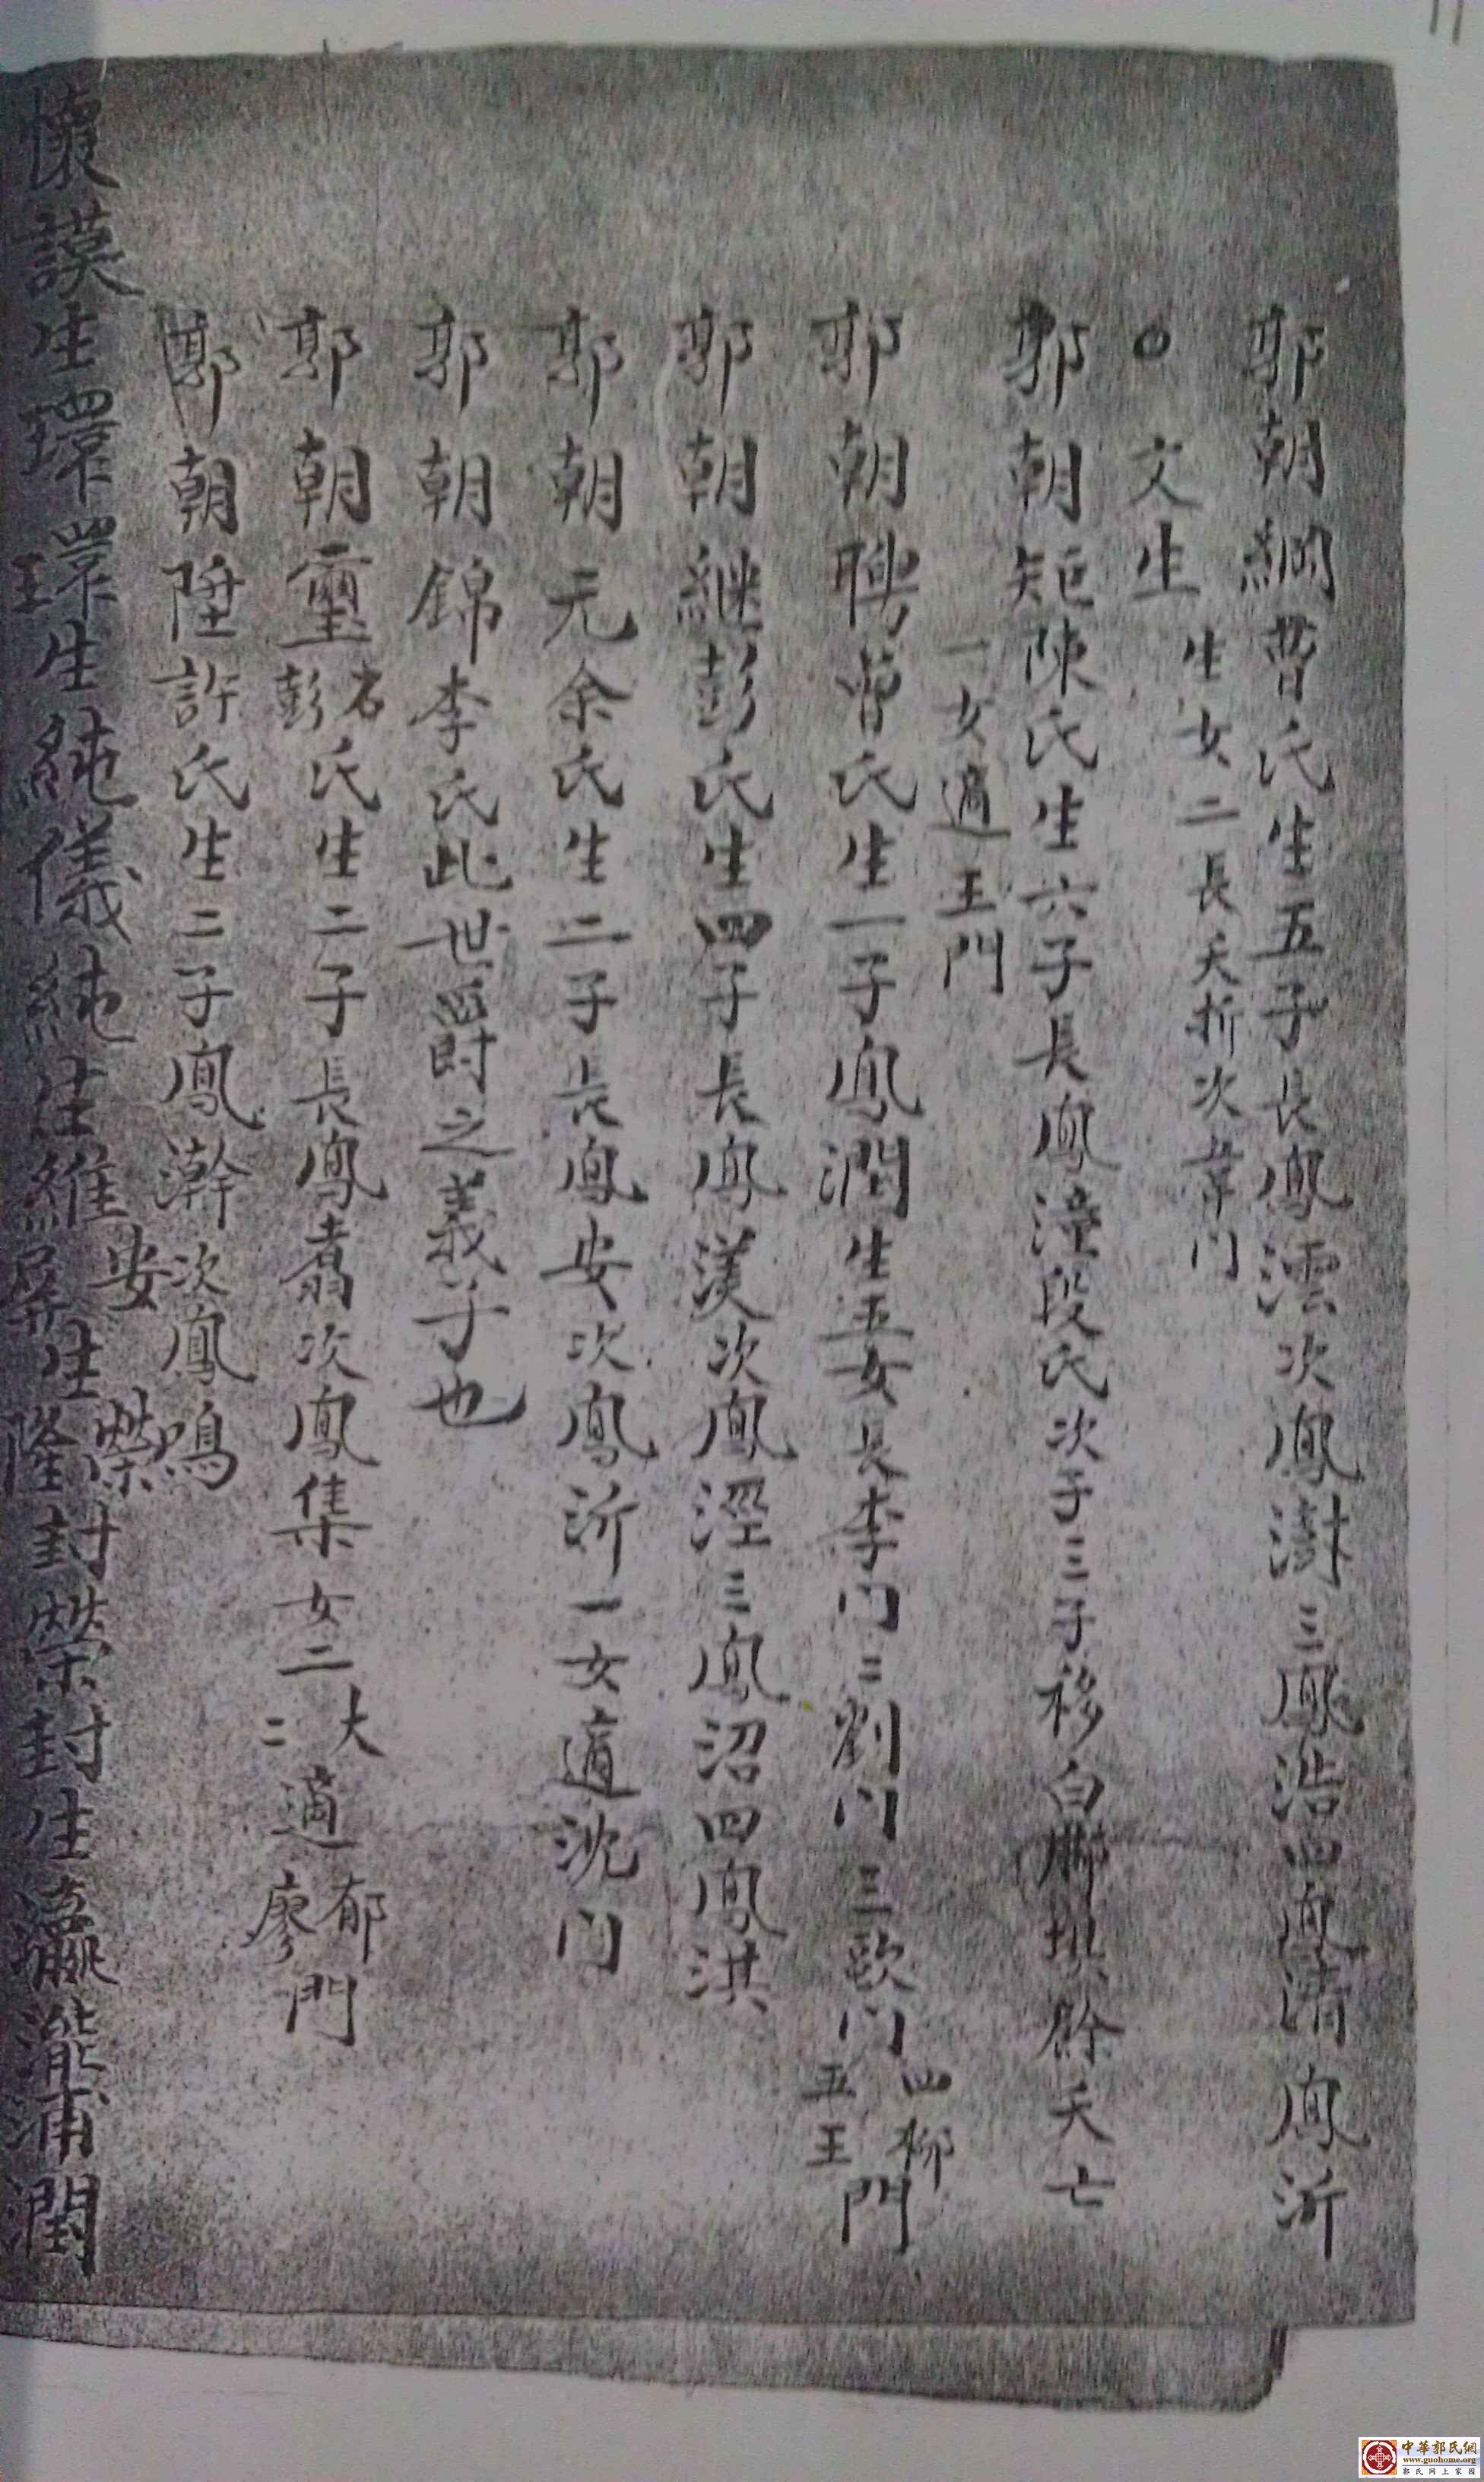 郭朝綱曹氏生五子長鳳澐次鳳澍三鳳浩四鳳清鳳沂
生女二長夭折次韋门
文生
郭朝矩陳氏生六子長鳳潼段氏次子三子移白聯垻餘夭亡
一女適王門
郭朝聘曾氏生一子鳳潤生五女長李门二劉门三歐门四柳五王門
郭朝継彭氏生四子長鳳漢次鳳涇三鳳沼四鳳淇
郭朝元余氏生二子長鳳安次鳳沂一女適沈门
郭朝錦李氏此世爵之義子也
郭朝璽石彭氏生二子長鳳翥次鳳集女二大二適郁廖門
郭朝陞許氏生二子鳳瀚次鳳鳴
懷謨生環環生純儀純生維安生榮隆封榮封生瀛瀧浦潤
中華郭氏網
www.guohome.org
郭氏网上家园
11